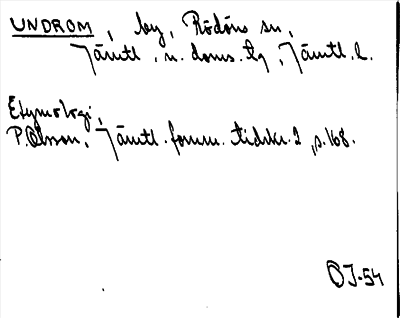 UNDROM, by, Rödöns sn,
Jämtl. n. doms. tlg, Jämtl. l.
Etymologi,
P. Olsson, Jämtl. fornm. tidskr. 2, s. 168.
OJ-54